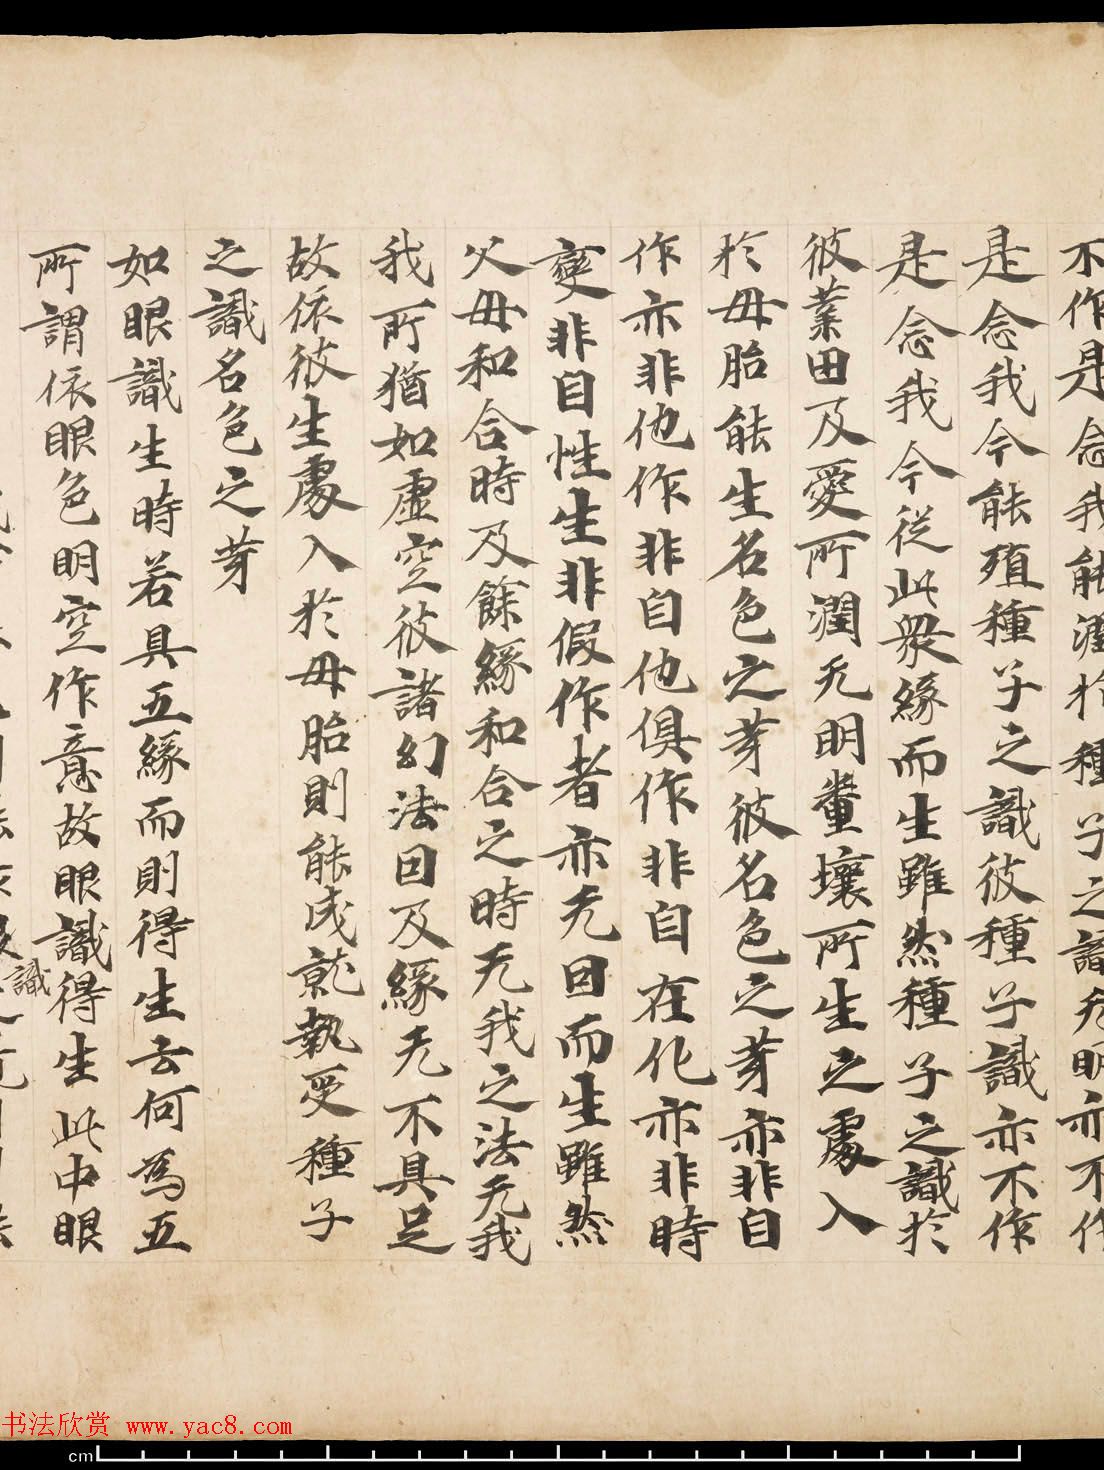 不作是念我能潤於種子之識无明亦不作
是念我今能殖種子之識彼種子識亦不作
是念我今從此衆緣而生雖然種子之識於
彼業田及愛所潤无明糞壤所生之處入
於母胎能生名色之芽彼名色之芽亦非自
作亦非他作非自他俱作非自在化亦非時
變非自性生非假作者亦无因而生雖然
父母和合時及餘緣和合之時无我之法无我
我所猶如虛空彼諸幻法因及緣无不具足
故依彼生處入於母胎則能成就執受種子
之識名色之芽
如眼識生時若具五緣而則得生云何為五
所謂依眼色明空作意故眼識得生此中眼
識
书法欣赏 www.yac8.com
cm